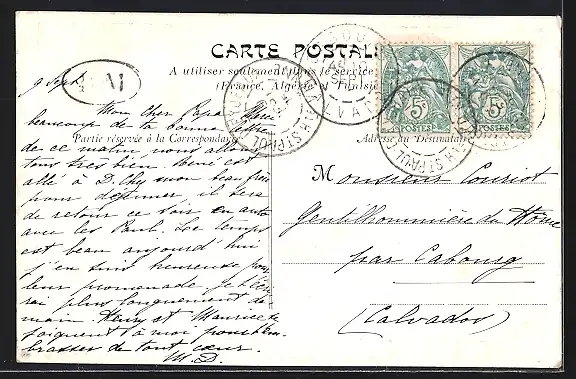 CARTE POSTALE
A utiliser seulement dans le service
(France, Algérie et Tunisie
5c
POSTES
5c
POSTES
9 Sept.
Mon cher Papa Merci
beaucoup de ta bonne lettre
Partie réservée à la Correspondance
Adresse du Destinataire
de ce matin nous allons
tous très bien
allé à D. mon beau frère
pour déjeuner, il sera
de retour ce soir en auto
avec les Paul. Le temps
est beau aujourd'hui
j'en suis heureuse pour
leur promenade. Je t'écri
rai plus longuement de
main Henry et Maurice se
joignent à moi pour t'em
brasser de tout cœur.
M. D.
Monsieur Couriot
Gentilhommière du Home
par Cabourg
(Calvados)